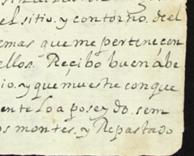 el sitio, y contorno. de el
emas que me perteneçen
ellos. Recibo buena be
io. y que muestre con que
ente lo a poseydo. sem
os montes. y Repastado